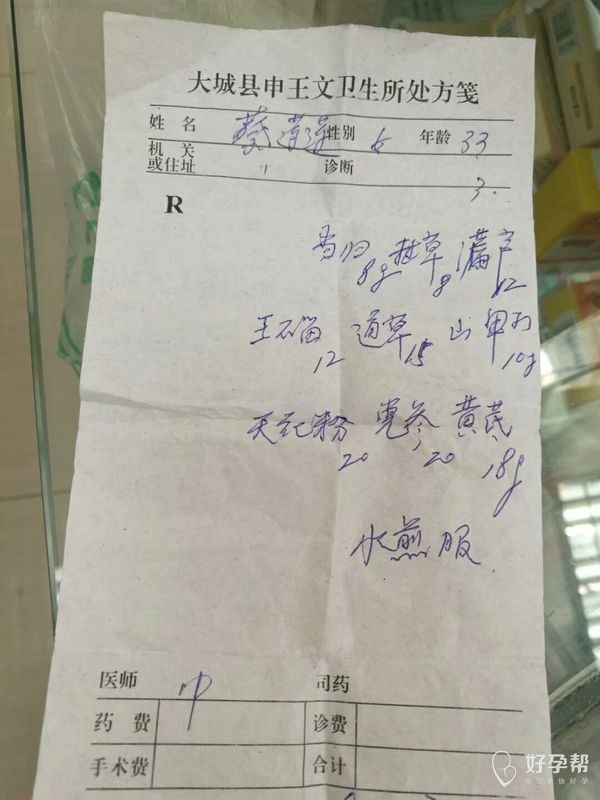 大城县申王文卫生所处方笺
姓名 蔡 莲 性别 女 年龄 33
机关或住址 诊断
3.
R
当归 8g 甘草 8 漏芦 12
王不留 12 通草 15 山甲 10g
天花粉 20 党参 20 黄芪 18g
水煎服
医师 司药
药费 诊费
手术费 合计
好孕帮